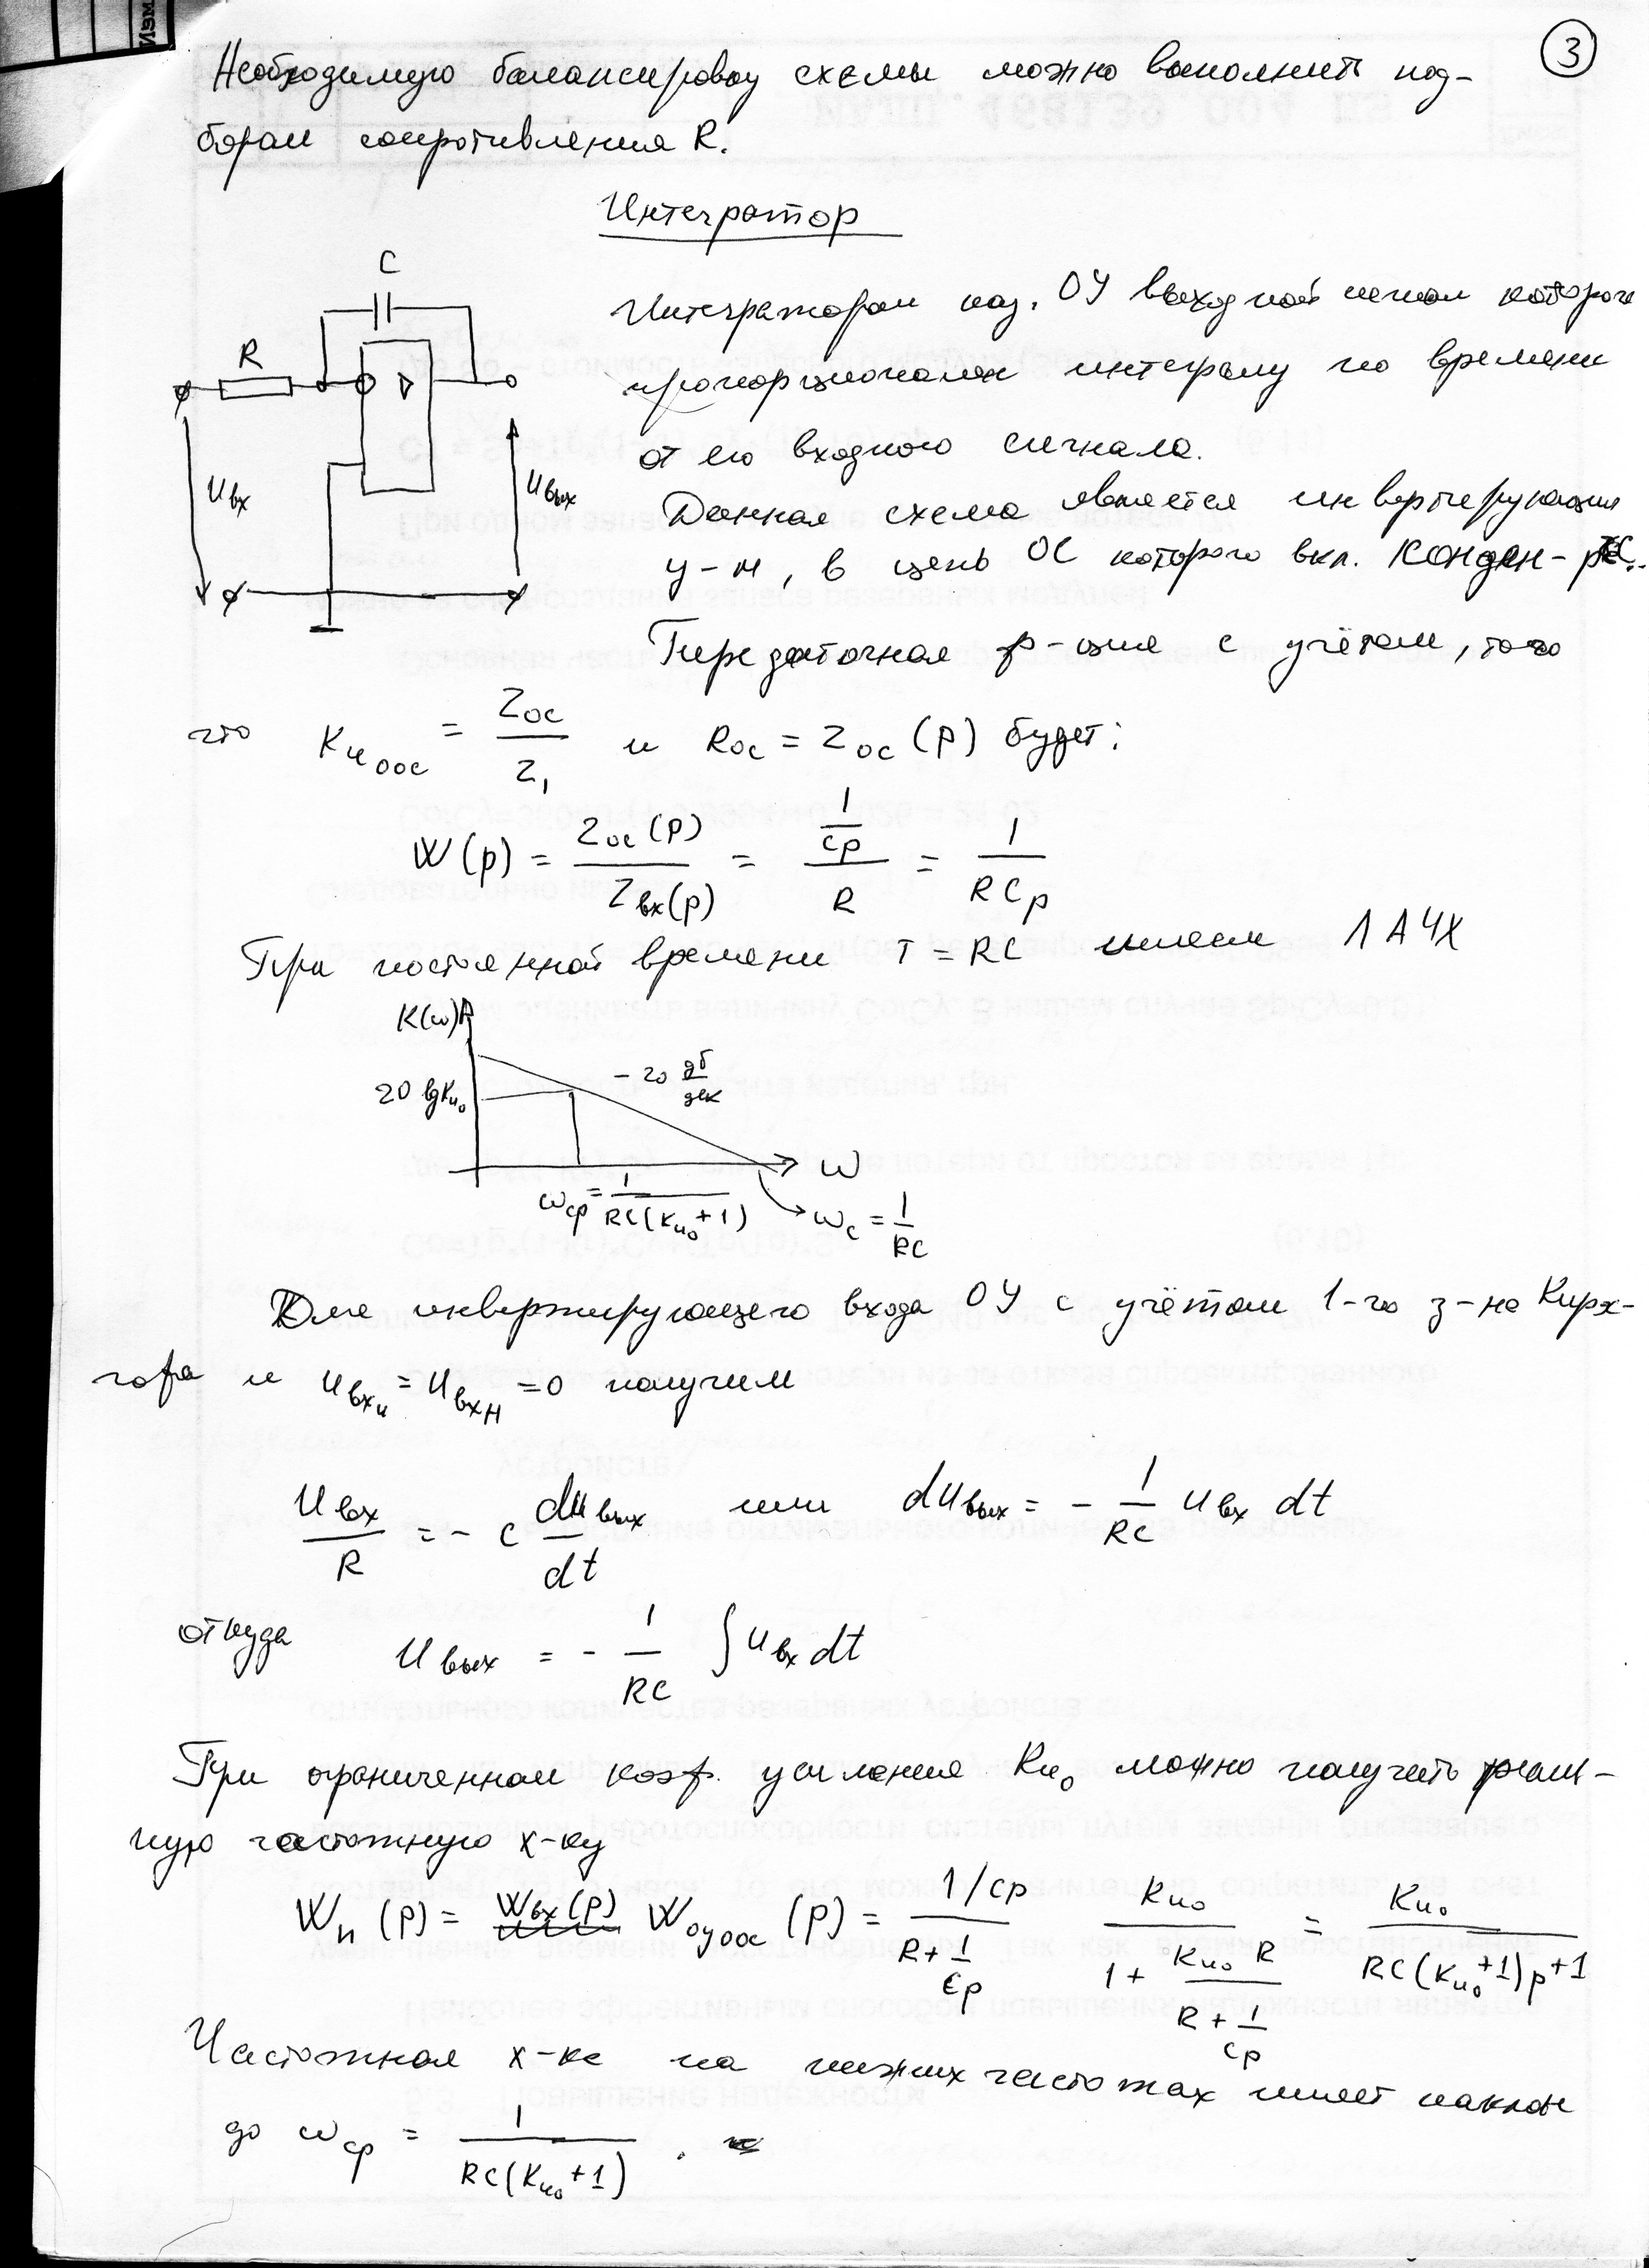 3
Необходимую балансировку схемы можно выполнить под-
бором сопротивления R.
Интегратор
C
R
Uвх
Uвых
Интегратором наз. ОУ выходной сигнал которого
пропорционален интегралу по времени
от его входного сигнала.
Данная схема является инвертирующим
у-м, в цепь ОС которого вкл. конден-р
Передаточная ф-ция с учётом, того
что Kи оос = Zос / Z1 и Rос = Zос (p) будет:
W(p) = Zос(p) / Zвх(p) = (1/Cp) / R = 1 / RCp
При постоянной времени T = RC имеем ЛАЧХ
K(ω)
20 lgKи₀
-20 дб/дек
ω
ωср = 1 / RC(Kи₀+1)
ωc = 1 / RC
Для инвертирующего входа ОУ с учётом 1-го з-на Кирх-
гофа и Uвхи = Uвхн = 0 получим
Uвх / R = - C dUвых / dt или dUвых = - 1/RC Uвх dt
откуда Uвых = - 1/RC ∫ Uвх dt
При ограниченном коэф. усиления Kи₀ можно получить реаль-
ную частотную х-ку
Wи (p) = Wвх(p) Wоуоос (p) = (1/Cp) / (R + 1/Cp) Kи₀ / (1 + Kи₀ R / (R + 1/Cp)) = Kи₀ / (RC(Kи₀+1)p+1)
Частотная х-ка на нижних частотах имеет наклон
до ωср = 1 / RC(Kи₀+1) .